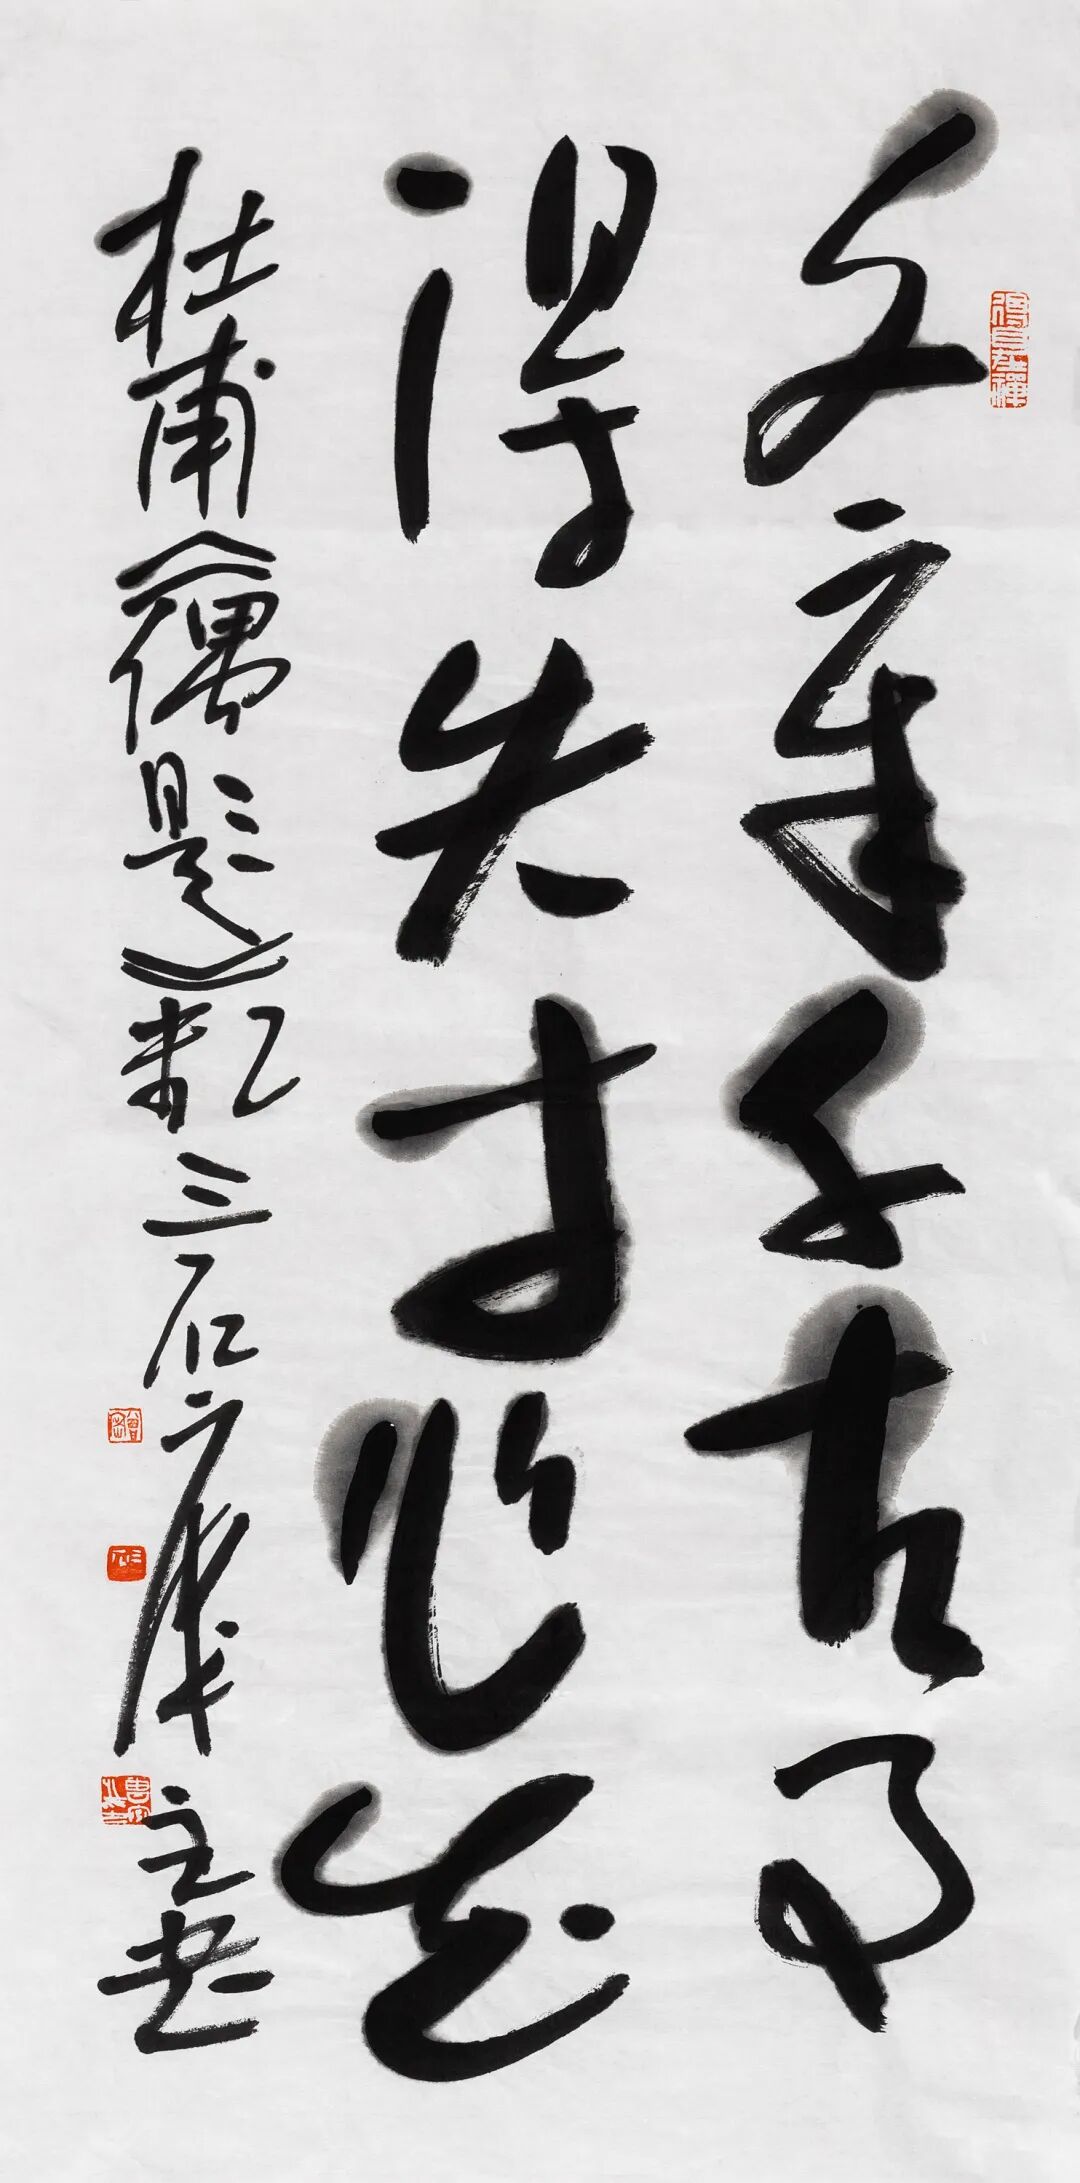 文章千古事
得失寸心知
杜甫《偶题》三石主书